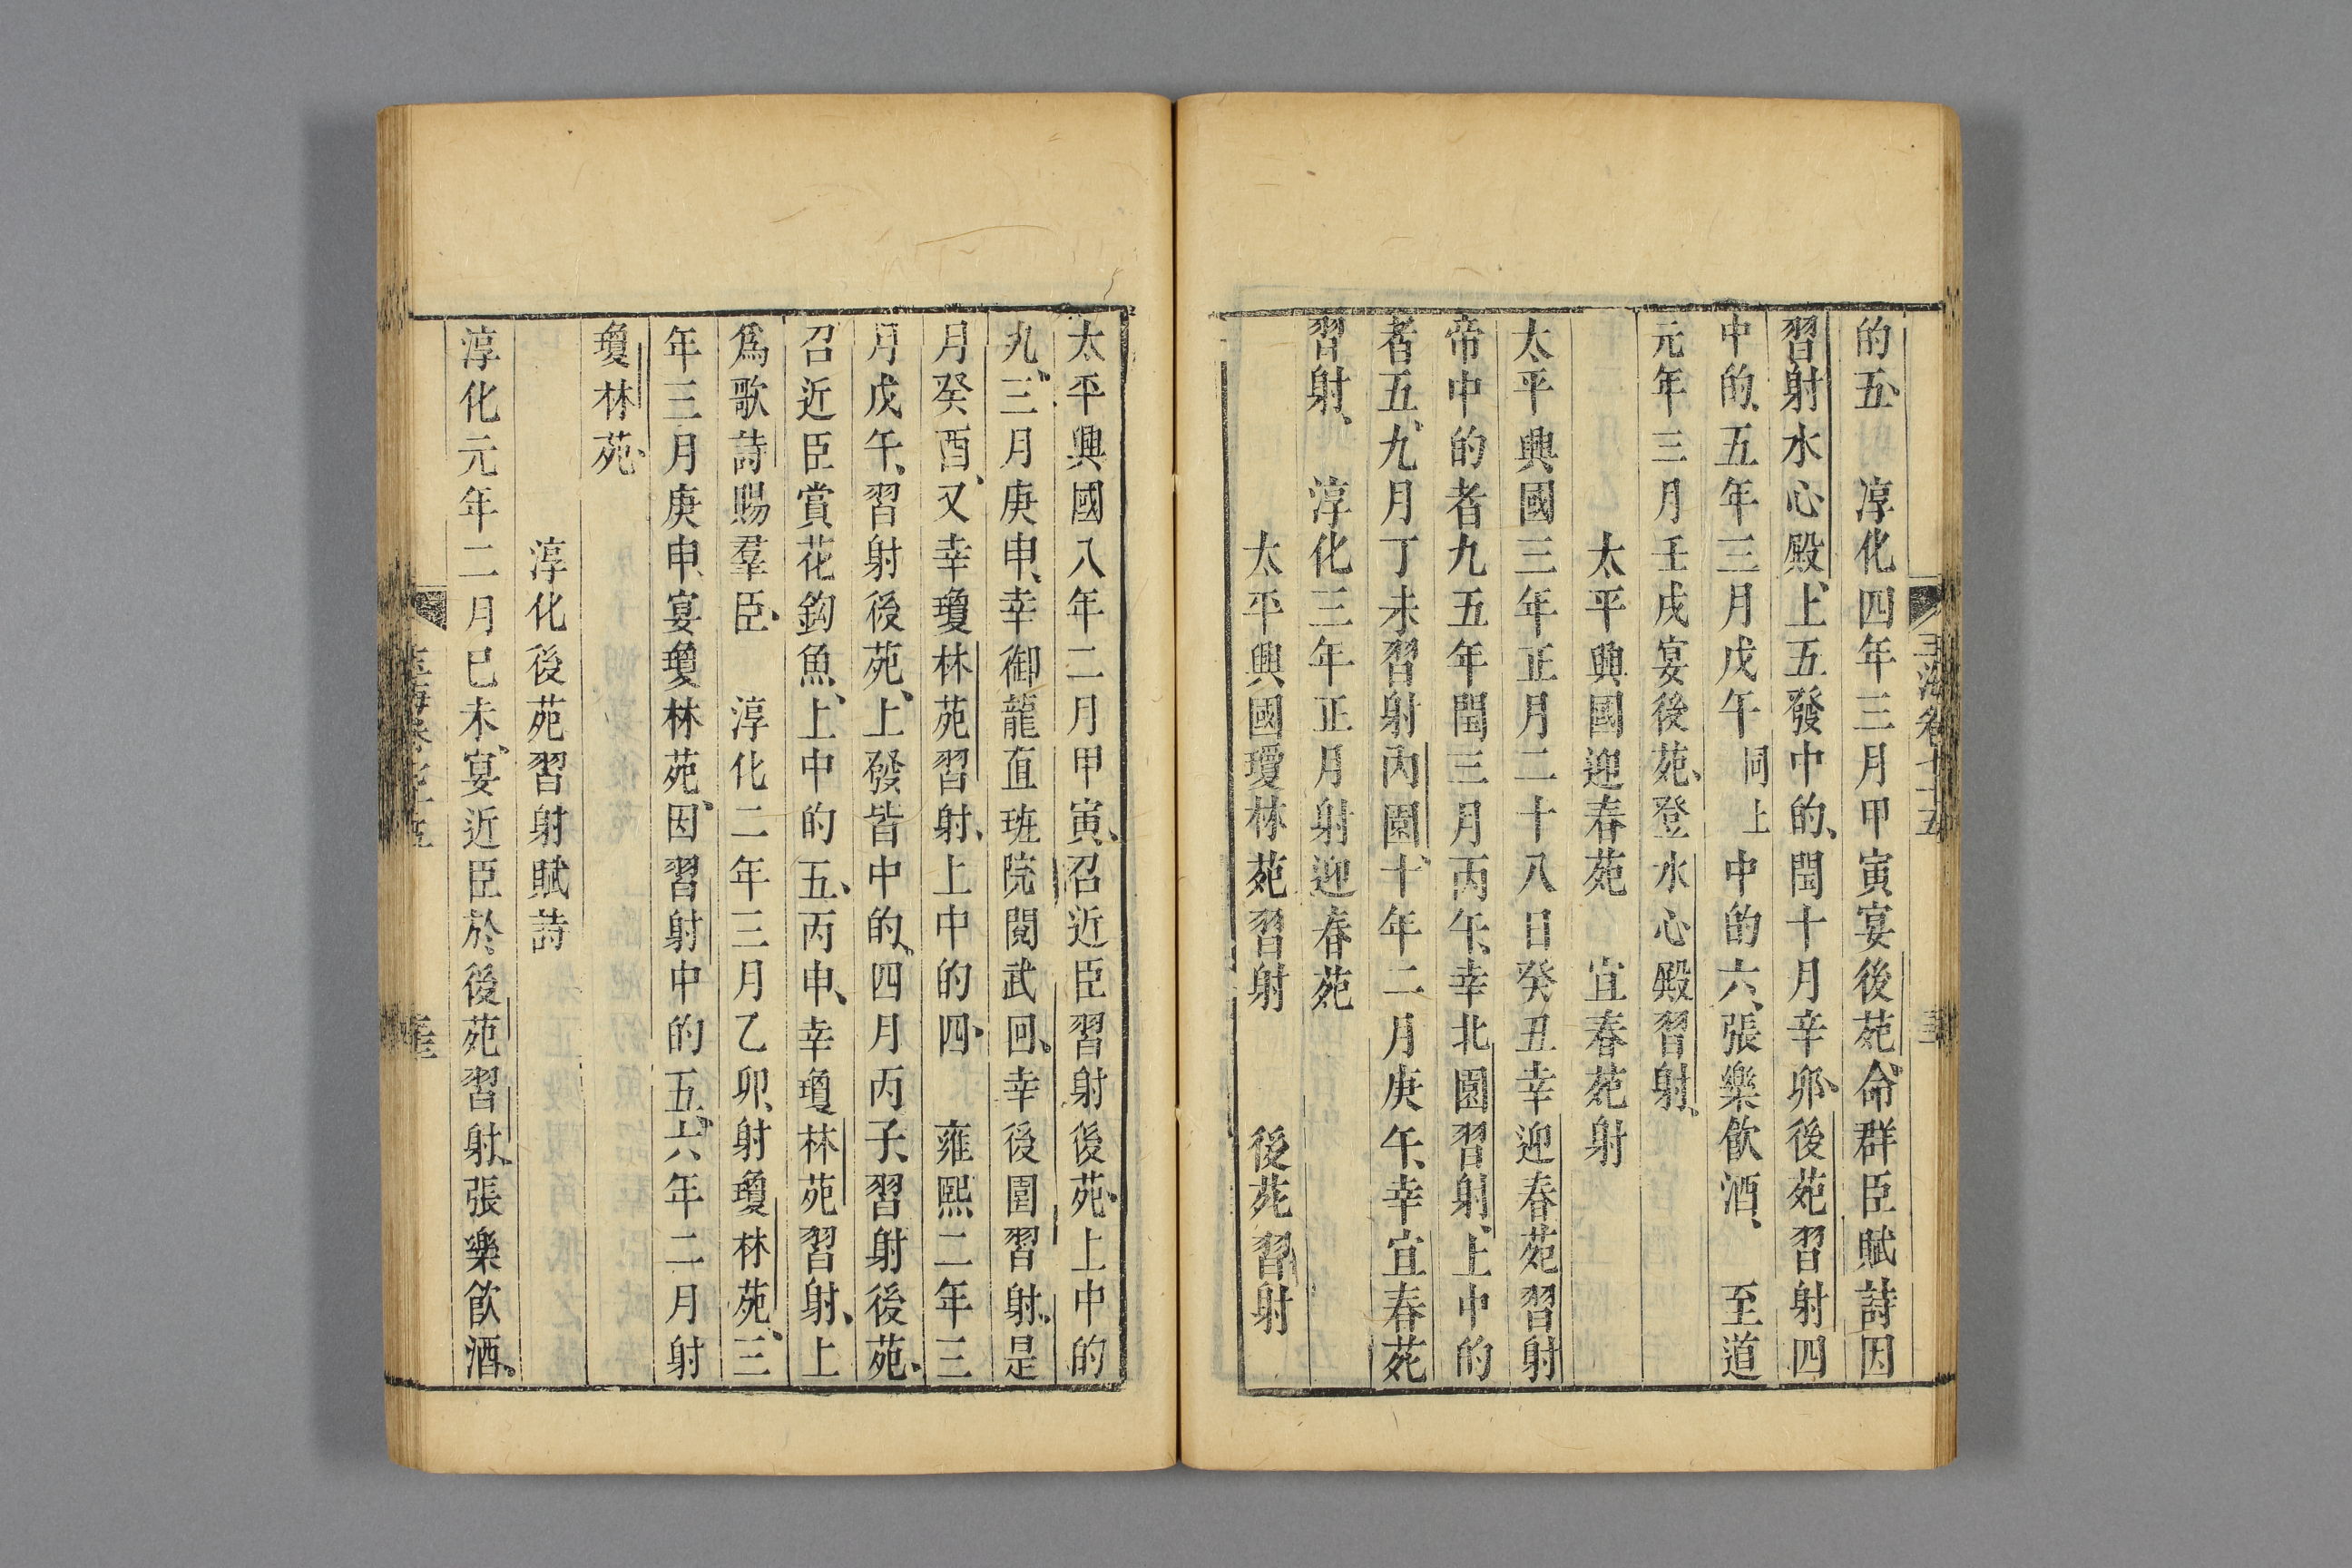 的五、 淳化四年三月甲寅宴後苑、命群臣賦詩因
習射水心殿、上五發中的、閏十月辛卯、後苑習射四
中的、五年三月戊午同上中的六、張樂飲酒、 至道
元年三月壬戌宴後苑、登水心殿習射、
太平興國迎春苑 宜春苑射
太平興國三年正月二十八日癸丑幸迎春苑習射
帝中的者九五年閏三月丙午、幸北園習射、上中的
者五、九月丁未習射内園、十年二月庚午、幸宜春苑
習射、 淳化三年正月射迎春苑
太平興國瓊林苑習射 後苑習射
太平興國八年二月甲寅、召近臣習射後苑、上中的
九、三月庚申、幸御龍直班院閱武回、幸後園習射、是
月癸酉、又幸瓊林苑習射、上中的四、 雍熙二年三
月戊午、習射後苑、上發皆中的、四月丙子、習射後苑、
召近臣賞花釣魚、上中的五、丙申、幸瓊林苑習射、上
爲歌詩賜羣臣、 淳化二年三月乙卯、射瓊林苑、三
年三月庚申、宴瓊林苑、因習射中的五、六年二月射
瓊林苑、
淳化後苑習射賦詩
淳化元年二月已未、宴近臣於後苑習射、張樂飲酒、